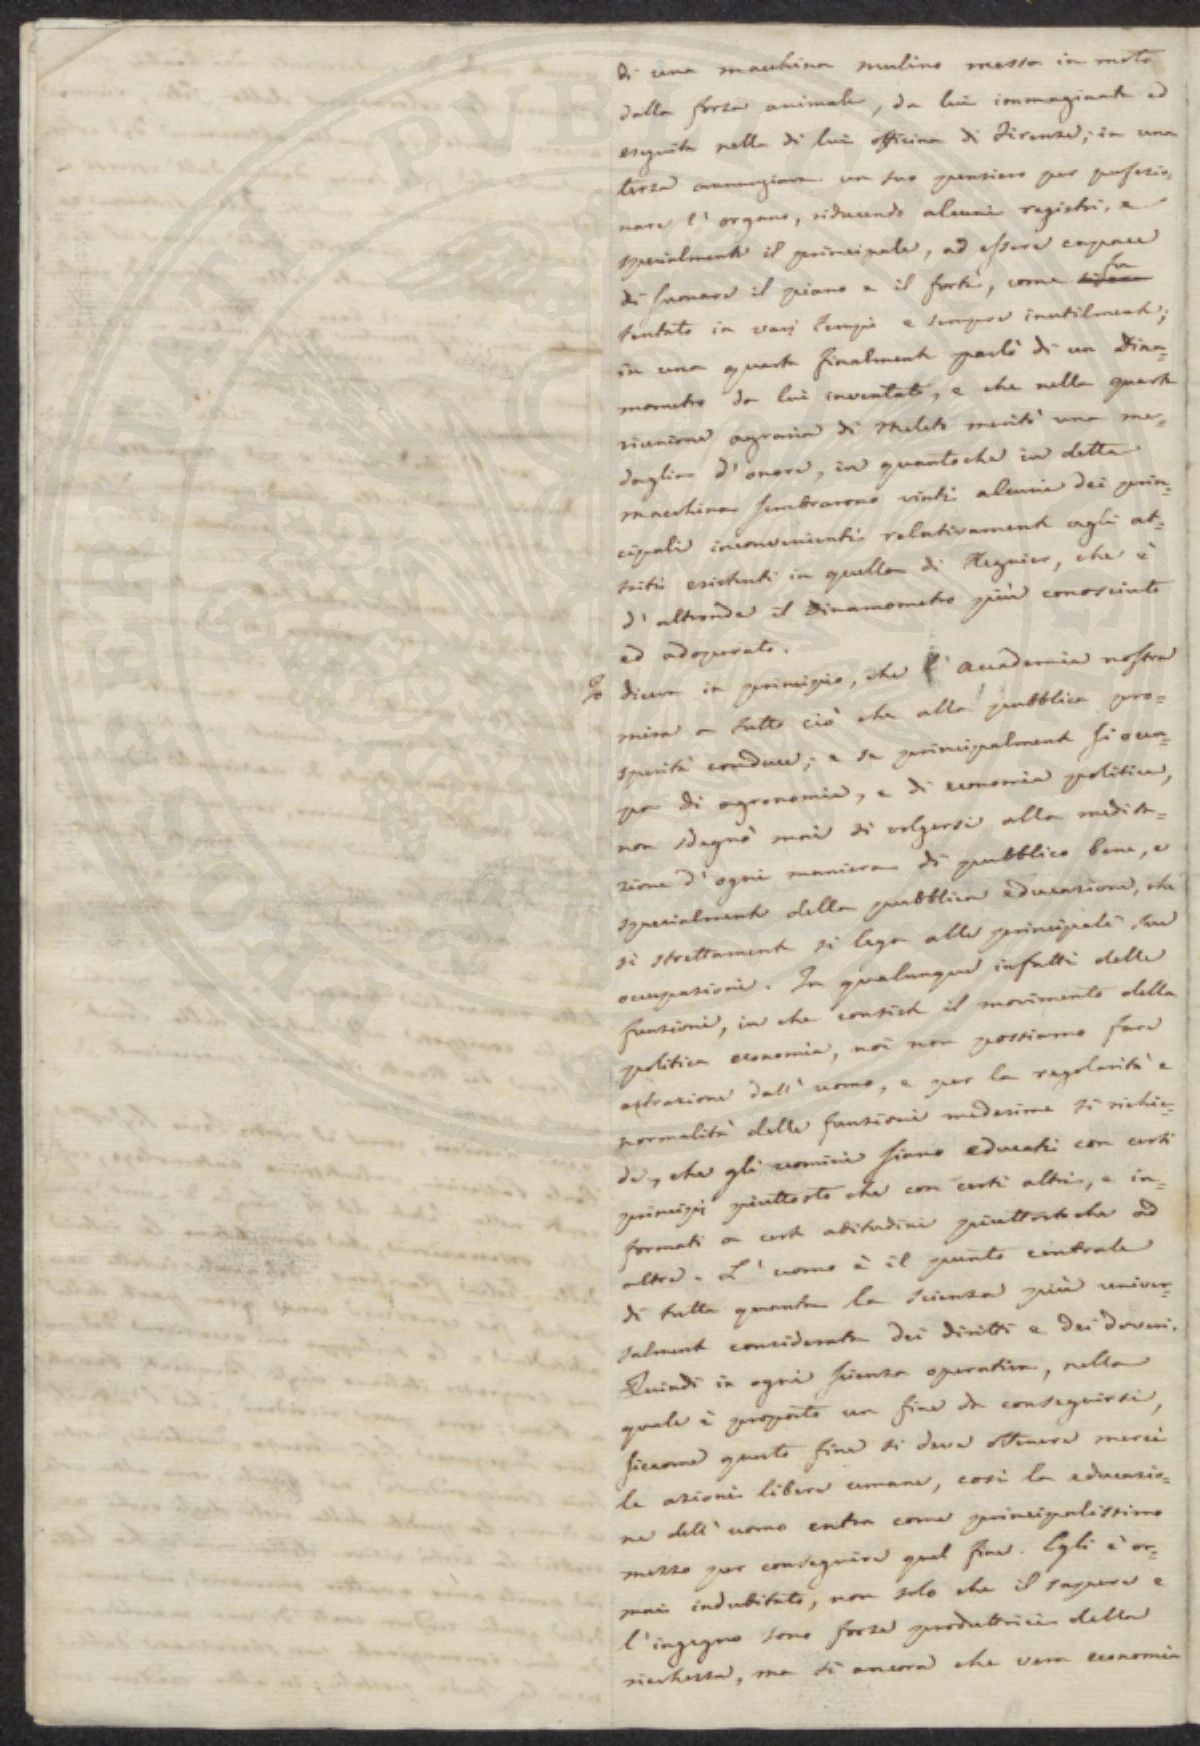 di una macchina mulino messa in moto
dalla forza animale, da lui immaginata ed
eseguita nella di lui officina di Firenze; in una
terza annunziava un suo pensiero per perfezio,
nare l'organo, riducendo alcuni registri, e
specialmente il principale, ad essere capace
di suonare il piano e il forte, come fu
tentato in varj tempi e sempre inutilmente;
in una quarta finalmente parlò di un Dina=
mometro da lui inventato, e che nella quarta
riunione agraria di Meleto meritò una me=
daglia d'onore, in quantoche in detta
macchina sembrarono vinti alcuni dei prin=
cipali inconvenienti relativamente agli at=
triti esistenti in quella di Regnier, che è
d'altronde il Dinamometro più conosciuto
ed adoperato.
Io diceva in principio, che l'Accademia nostra
mira a tutto ciò che alla pubblica pro=
sperità conduce; e se principalmente si occu=
pa di agronomia, e di economia politica,
non sdegnò mai di volgersi alla medita=
zione d'ogni maniera di pubblico bene, e
specialmente della pubblica educazione, che
sì strettamente si lega alle principali sue
occupazioni. In qualunque infatti delle
funzioni, in che consiste il movimento della
politica economia, noi non possiamo fare
astrazione dall'uomo, e per la regolarità e
normalità delle funzioni medesime si richie=
de, che gli uomini siano educati con certi
principj piuttosto che con certi altri, e in=
formati a certe abitudini piuttostoche ad
altre. L'uomo è il punto centrale
di tutta quanta la scienza più univer=
salmente considerata dei diritti e dei doveri.
Quindi in ogni scienza operativa, nella
quale è proposto un fine da conseguirsi,
siccome questo fine si deve ottenere mercè
le azioni libere umane, così la educazio=
ne dell'uomo entra come principalissimo
mezzo per conseguire quel fine. Egli è or=
mai indubitato, non solo che il sapere e
l'ingegno sono forze produttrici della
ricchezza, ma sì ancora che vera economia